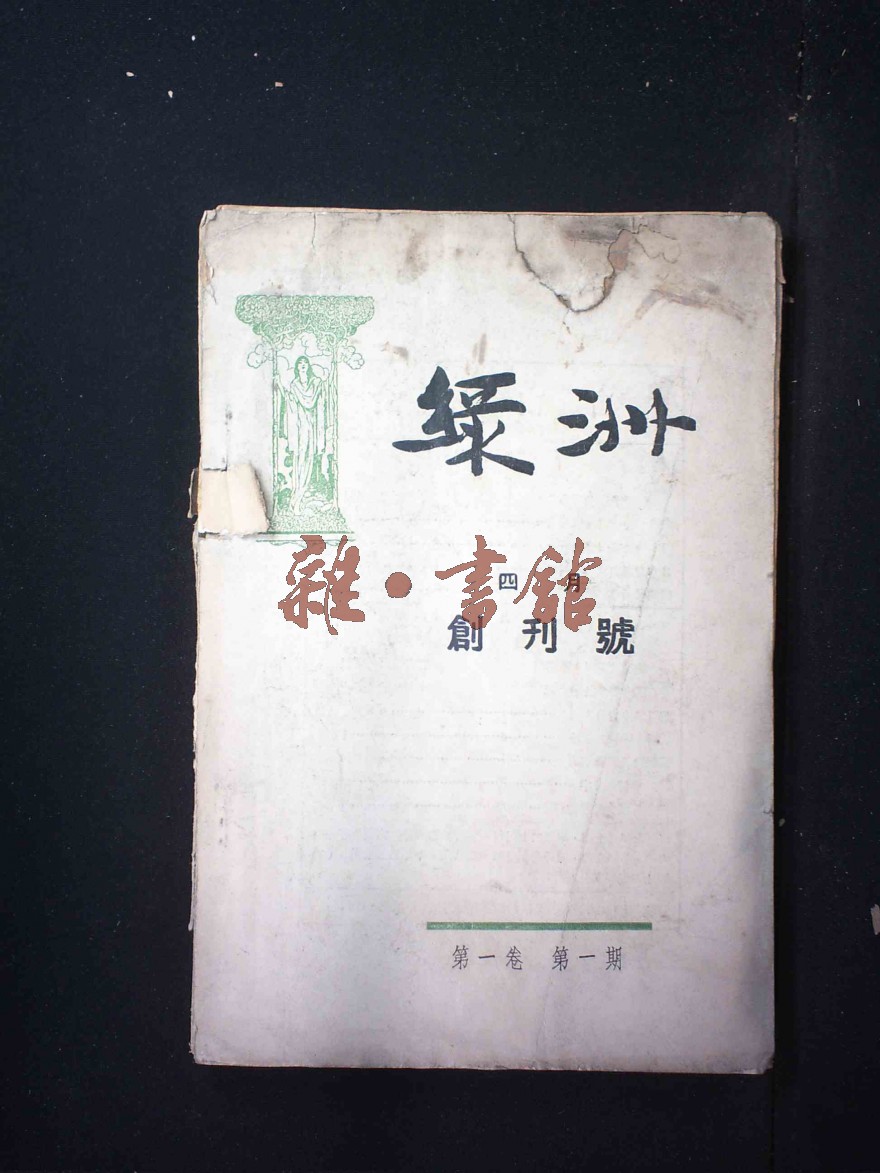 綠洲
四月
雜·書館
創刊號
第一卷 第一期